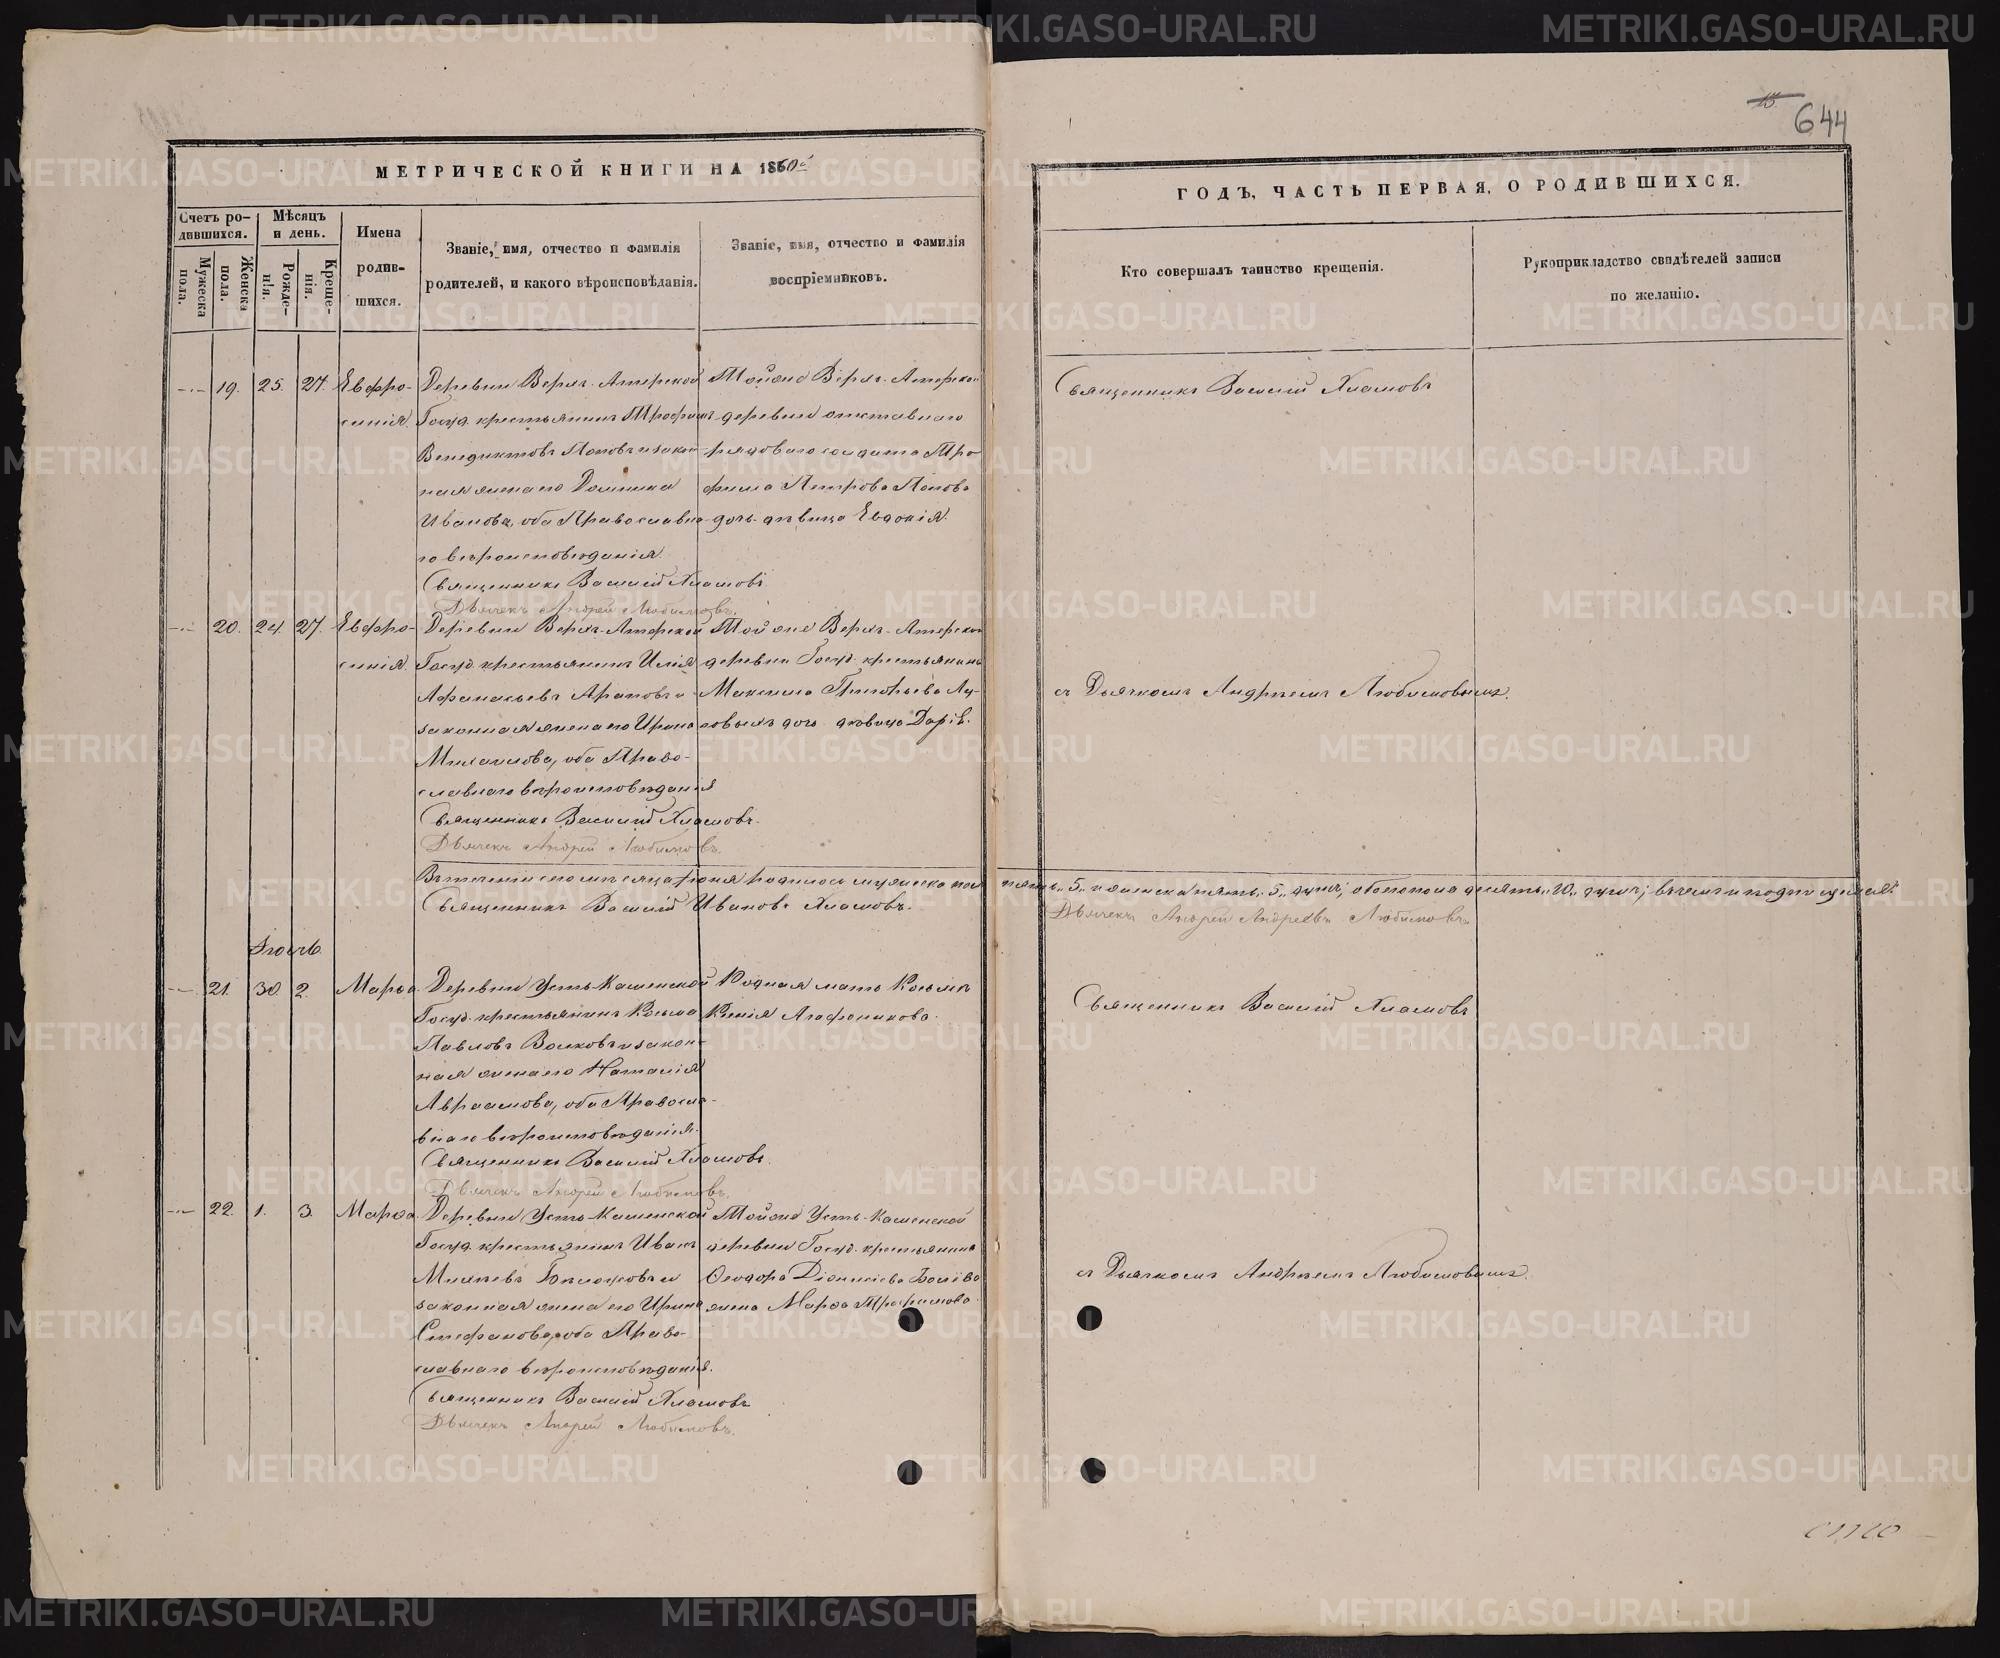 15
644
МЕТРИЧЕСКОЙ КНИГИ НА 1860й
ГОДЪ, ЧАСТЬ ПЕРВАЯ, О РОДИВШИХСЯ.
Счетъ родившихся.
Мужеска пола.
Женска пола.
Мѣсяцъ и день.
Рожденія.
Крещенія.
Имена родившихся.
Званіе, имя, отчество и фамилія
родителей, и какого вѣроисповѣданія.
Званіе, имя, отчество и фамилія
воспріемниковъ.
Кто совершалъ таинство крещенія.
Рукоприкладство свидѣтелей записи
по желанію.
19. 25. 27. Евфро-
синія.
Деревни Верхъ-Атерской
Госуд. крестьянинъ Трофимъ
Венедиктовъ Поповъ и закон-
ная жена его Домника
Иванова, оба Православна-
го вѣроисповѣданія.
Священникъ Василій Хламовъ
Дьячекъ Андрей Любимовъ.
Тойже Верхъ-Атерской
деревни отставнаго
рядоваго солдата Тро-
фима Петрова Попова
дочь девица Евдокія.
Священникъ Василій Хламовъ
20. 24. 27. Евфро-
синія.
Деревни Верхъ-Атерской
Госуд. крестьянинъ Илія
Афанасьевъ Араповъ и
законная жена его Ирина
Михаилова, оба Право-
славнаго вѣроисповѣданія
Священникъ Василій Хламовъ.
Дьячекъ Андрей Любимовъ.
Тойже Верхъ-Атерской
деревни Госуд. крестьянина
Максима Григорьева
дочь девица Дарія.
съ Дьячкомъ Андреемъ Любимовымъ.
Въ теченіи сего мѣсяца Іюня родилось мужеска пола пять "5" и женска пять "5" душъ; обоего пола десять "10" душъ; въ чемъ и подписуемся:
Священникъ Василій Ивановъ Хламовъ.
Дьячекъ Андрей Андреевъ Любимовъ.
Іюль
21. 30. 2. Марѳа
Деревни Усть-Кашенской
Госуд. крестьянинъ Козьма
Павловъ Волковъ и закон-
ная жена его Наталія
Авраамова, оба Правосла-
внаго вѣроисповѣданія.
Священникъ Василій Хламовъ
Дьячекъ Андрей Любимовъ.
Родная мать Козьмы
Ксенія Агафоникова.
Священникъ Василій Хламовъ
22. 1. 3. Марѳа
Деревни Усть-Кашенской
Госуд. крестьянинъ Иванъ
законная жена его Ирина
Стефанова, оба Право-
славнаго вѣроисповѣданія.
Священникъ Василій Хламовъ
Дьячекъ Андрей Любимовъ.
Тойже Усть-Кашенской
деревни Госуд. крестьянина
Ѳеодора Діонисіева
жена Марѳа Трофимова.
съ Дьячкомъ Андреемъ Любимовымъ.
METRIKI.GASO-URAL.RU